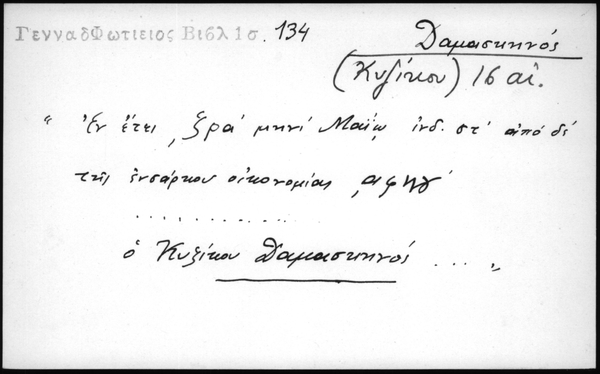 ΓενναδΦωτιειος Βιβλ 1σ. 134
Δαμασκηνός
(Κυζίκου) 16 αἰ.
" Ἐν ἔτει ͵ζρα΄ μηνί Μαΐῳ ἰνδ. στ΄ ἀπό δέ
τῆς ἐνσάρκου οἰκονομίας ͵αφηγ΄
. . . . . . . . . . .
ὁ Κυζίκου Δαμασκηνός .... „